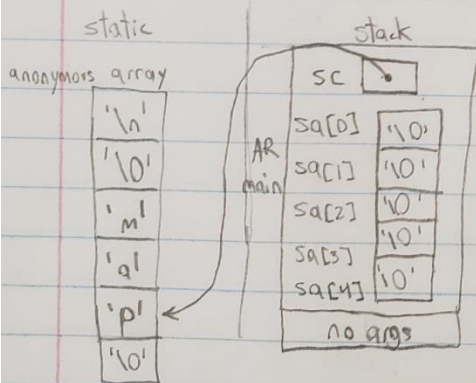 static
anonymors array
'\n'
'\0'
'm'
'a'
'p'
'\0'
stack
AR
main
sc
sa[0] '\0'
sa[1] '\0'
sa[2] '\0'
sa[3] '\0'
sa[4] '\0'
no args